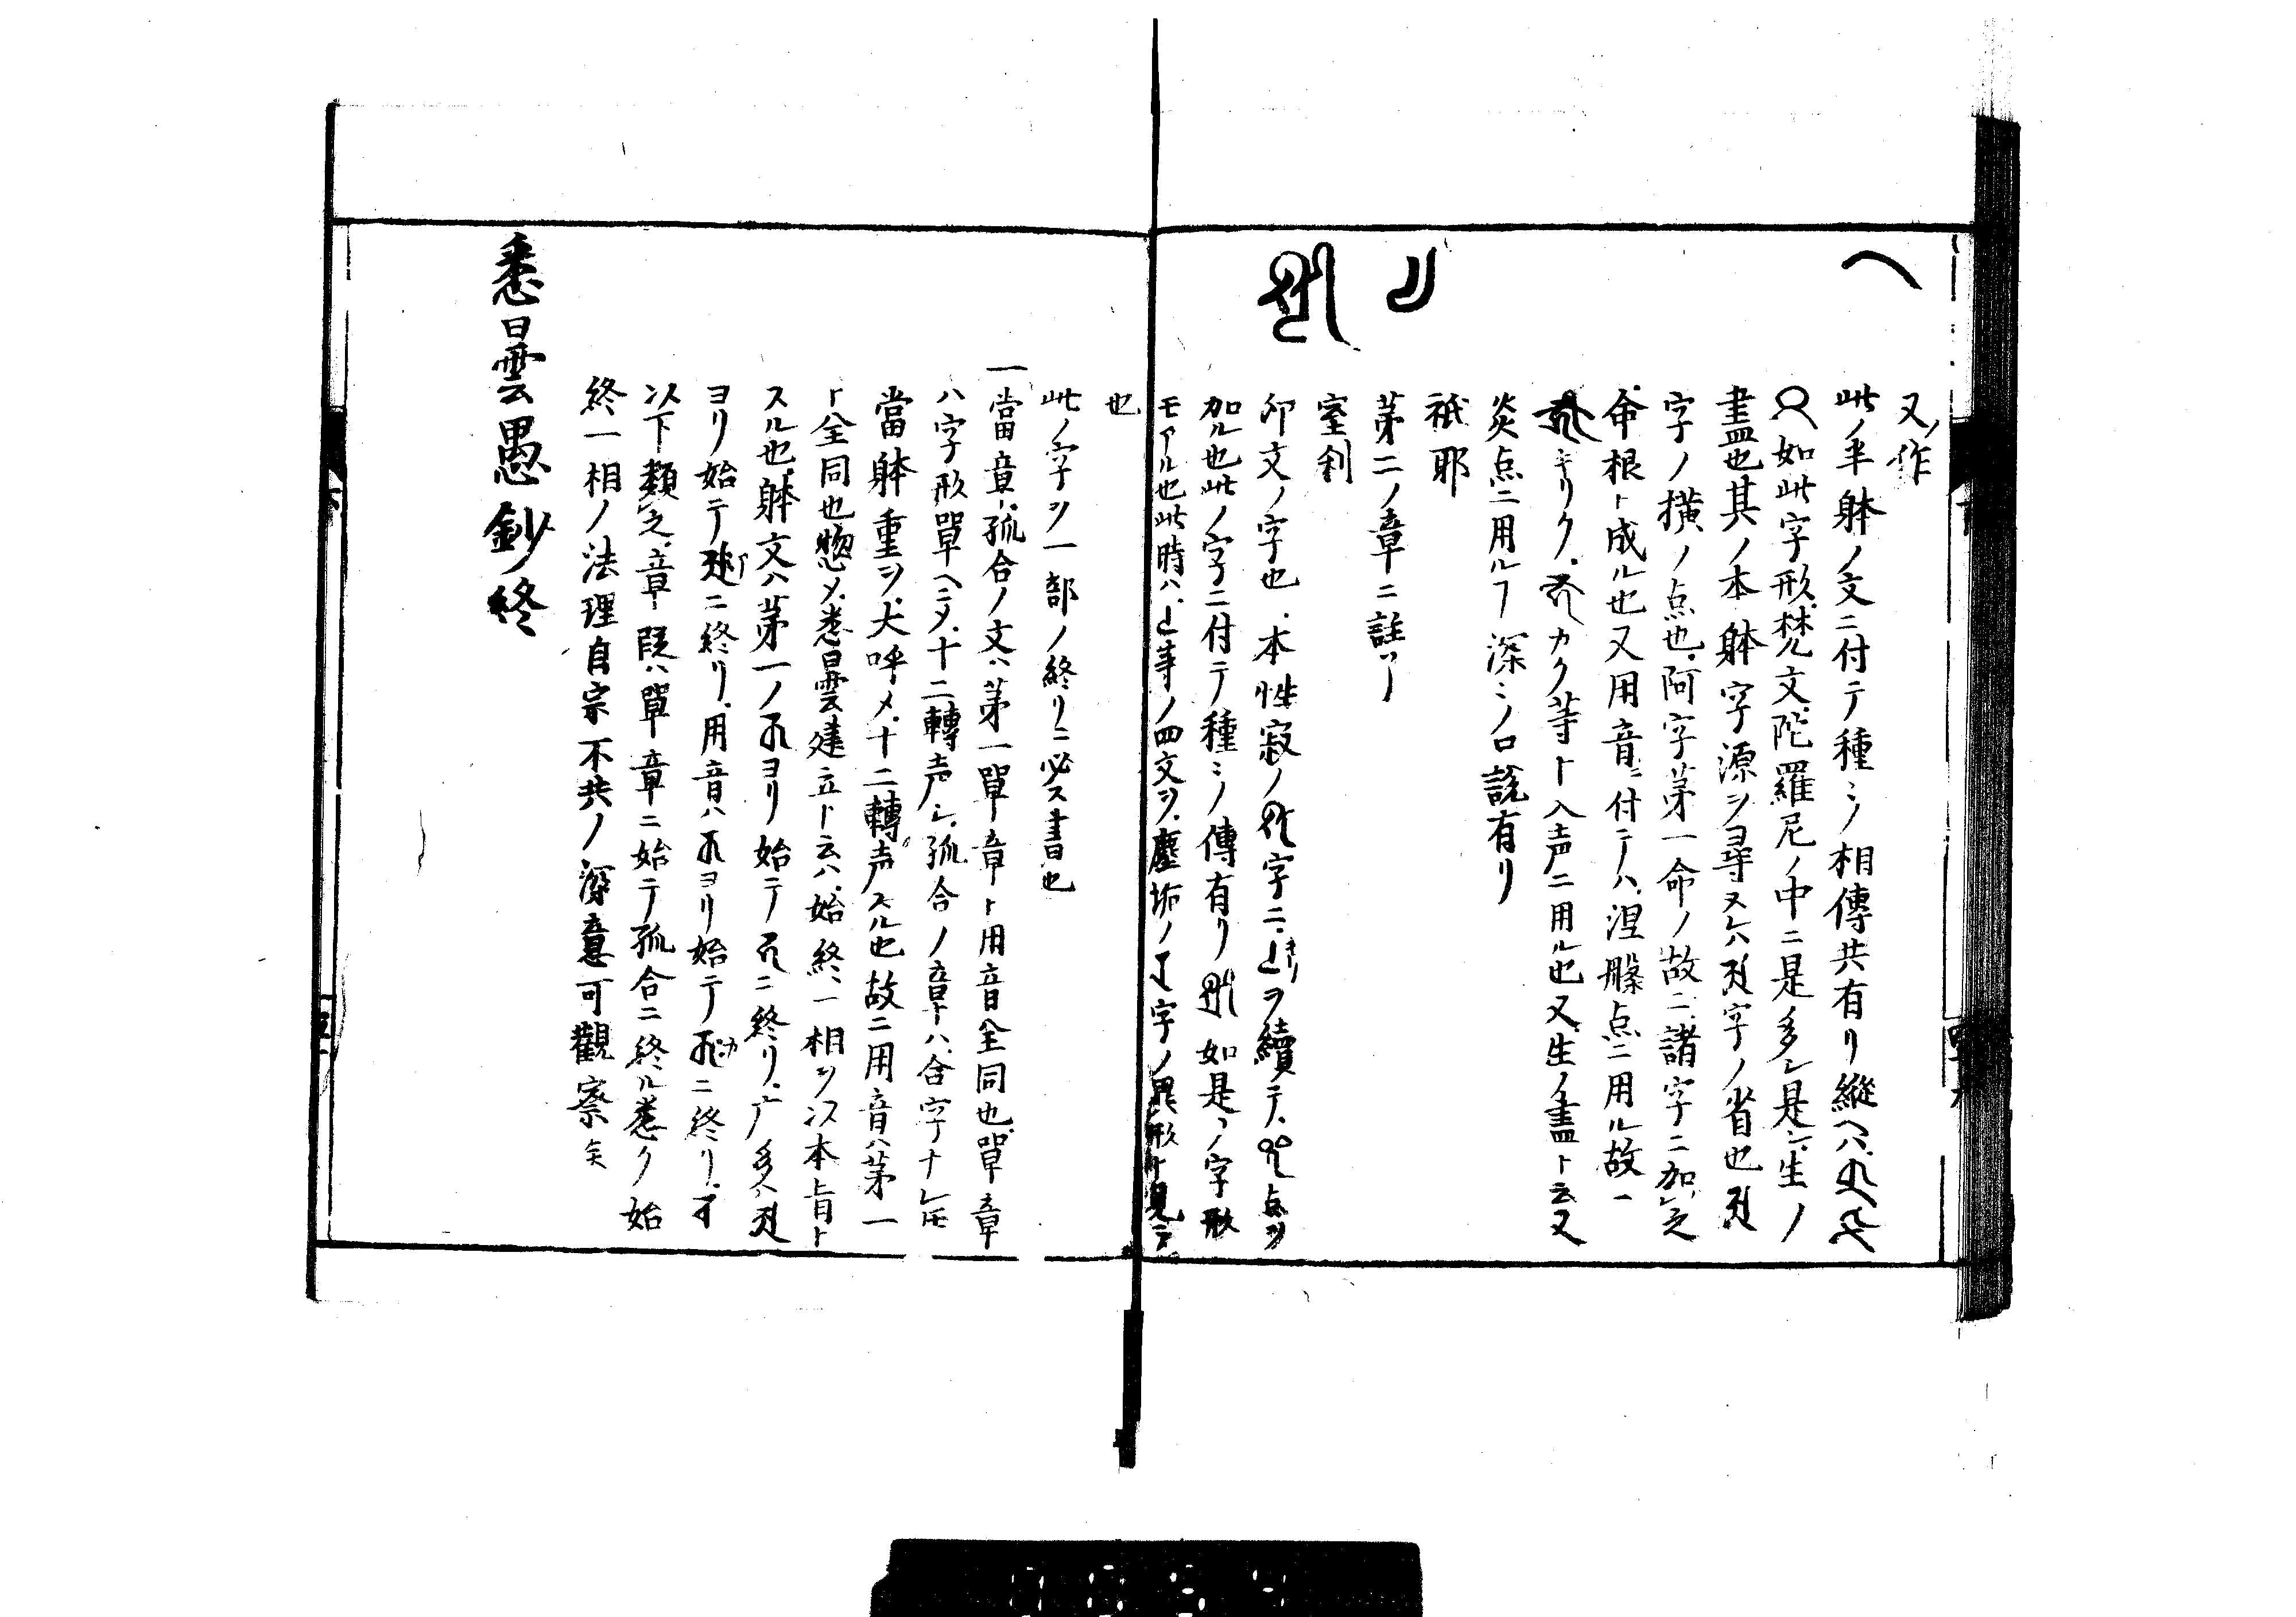 又作
此ノ半躰ノ文ニ付テ種〻ノ相傳共有リ縱ヘハ
如此字形梵文陀羅尼ノ中ニ是多シ是六生ノ
盡也其ノ本躰字源ヲ尋ヌレハ 字ノ省也
字ノ横ノ点也阿字苐一命ノ故ニ諸字ニ加之
命根ト成ル也又用音ニ付テハ涅槃点ニ用ル故一
キリクカク等ト入声ニ用ル也又生ノ盡ト云又
炎点ニ用ルフ深〻ノ口說有リ
祇耶
苐二ノ章ニ註
室利
卯文ノ字也本性寂ノ 字ニ ヲ續テ 点ヲ
加ル也此ノ字ニ付テ種〻ノ傳有リ 如是ノ字形
モアル也此時ハ 等ノ四文ヲ塵垢ノ 字ノ異形ト見テ
也
此ノ字ヲ一部ノ終リニ必ス書也
一當章孤合ノ文ハ苐一單章ト用音全同也單章
ハ字形單ヘニメ十二轉声シ孤合ノ章ハ合字ナレ𪜈
當躰重ヲ大呼メ十二轉声スル也故ニ用音ハ苐一
ト全同也惣メ悉曇建立ト云ハ始終一相ヲ以本旨ト
スル也躰文ハ苐一ノ ヨリ始テ ニ終リ广多ハ
ヨリ始テ ニ終リ用音ハ ヨリ始テ ニ終リ
以下類之章段ハ單章ニ始テ孤合ニ終ル悉ク始
終一相ノ法理自宗不共ノ深意可觀察矣
悉曇愚鈔終